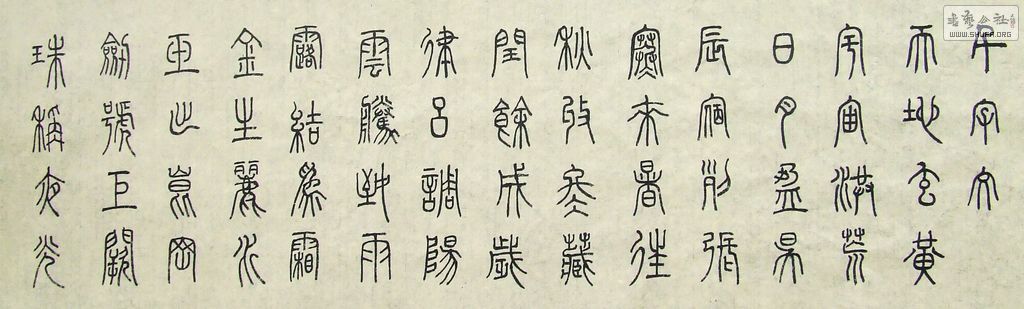 千字文
天地玄黃
宇宙洪荒
日月盈昃
辰宿列張
寒來暑往
秋收冬藏
閏餘成歲
律呂調陽
雲騰致雨
露結為霜
金生麗水
玉出崑岡
劍號巨闕
珠稱夜光
書藝公社
WWW.SHUFA.ORG